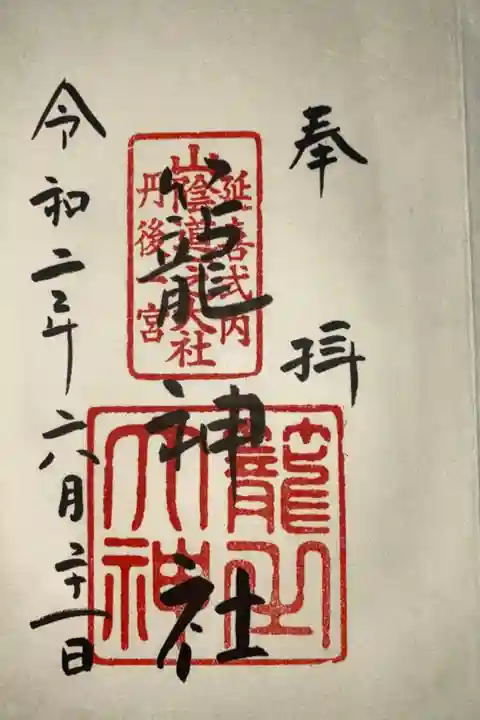 奉拝
延喜式内
山陰道大社
丹後一宮
籠神社
籠之大神
令和二年六月二十一日